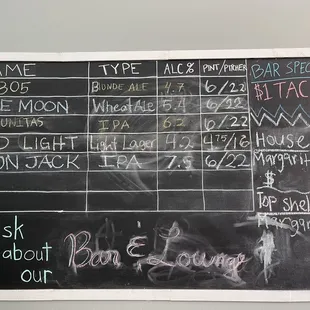 AME TYPE ALC% PINT/PITCHER
805 BLONDE ALE 4.7 6/22
E MOON Wheat ALE 5.4 6/22
UNITAS IPA 6.2 6/22
D LIGHT Light Lager 4.2 4.75/16
ON JACK IPA 7.5 6/22
BAR SPEC
$1 TAC
House
Margarit
$
Top shel
Margar
sk
about
our
Bar & Lounge